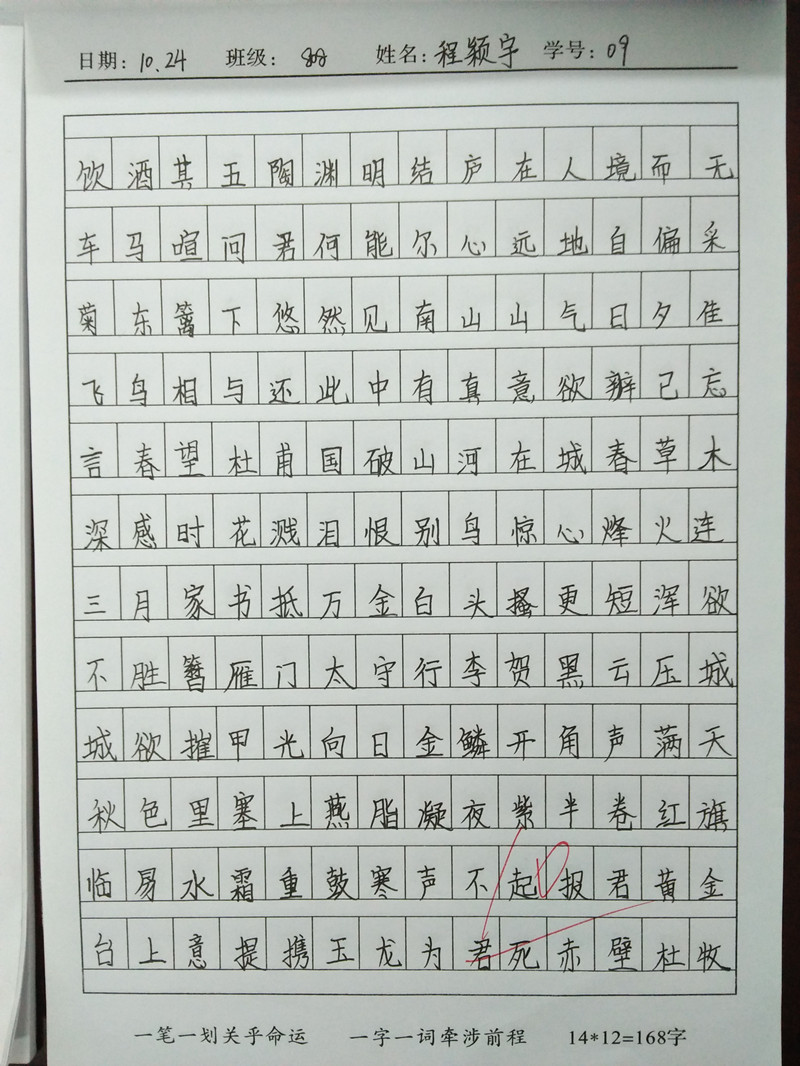 日期：10.24 班级： 姓名：程颖宇 学号：09
饮酒其五陶渊明结庐在人境而无
车马喧问君何能尔心远地自偏采
菊东篱下悠然见南山山气日夕佳
飞鸟相与还此中有真意欲辨已忘
言春望杜甫国破山河在城春草木
深感时花溅泪恨别鸟惊心烽火连
三月家书抵万金白头搔更短浑欲
不胜簪雁门太守行李贺黑云压城
城欲摧甲光向日金鳞开角声满天
秋色里塞上燕脂凝夜紫半卷红旗
临易水霜重鼓寒声不起报君黄金
台上意提携玉龙为君死赤壁杜牧
一笔一划关乎命运 一字一词牵涉前程 14*12=168字